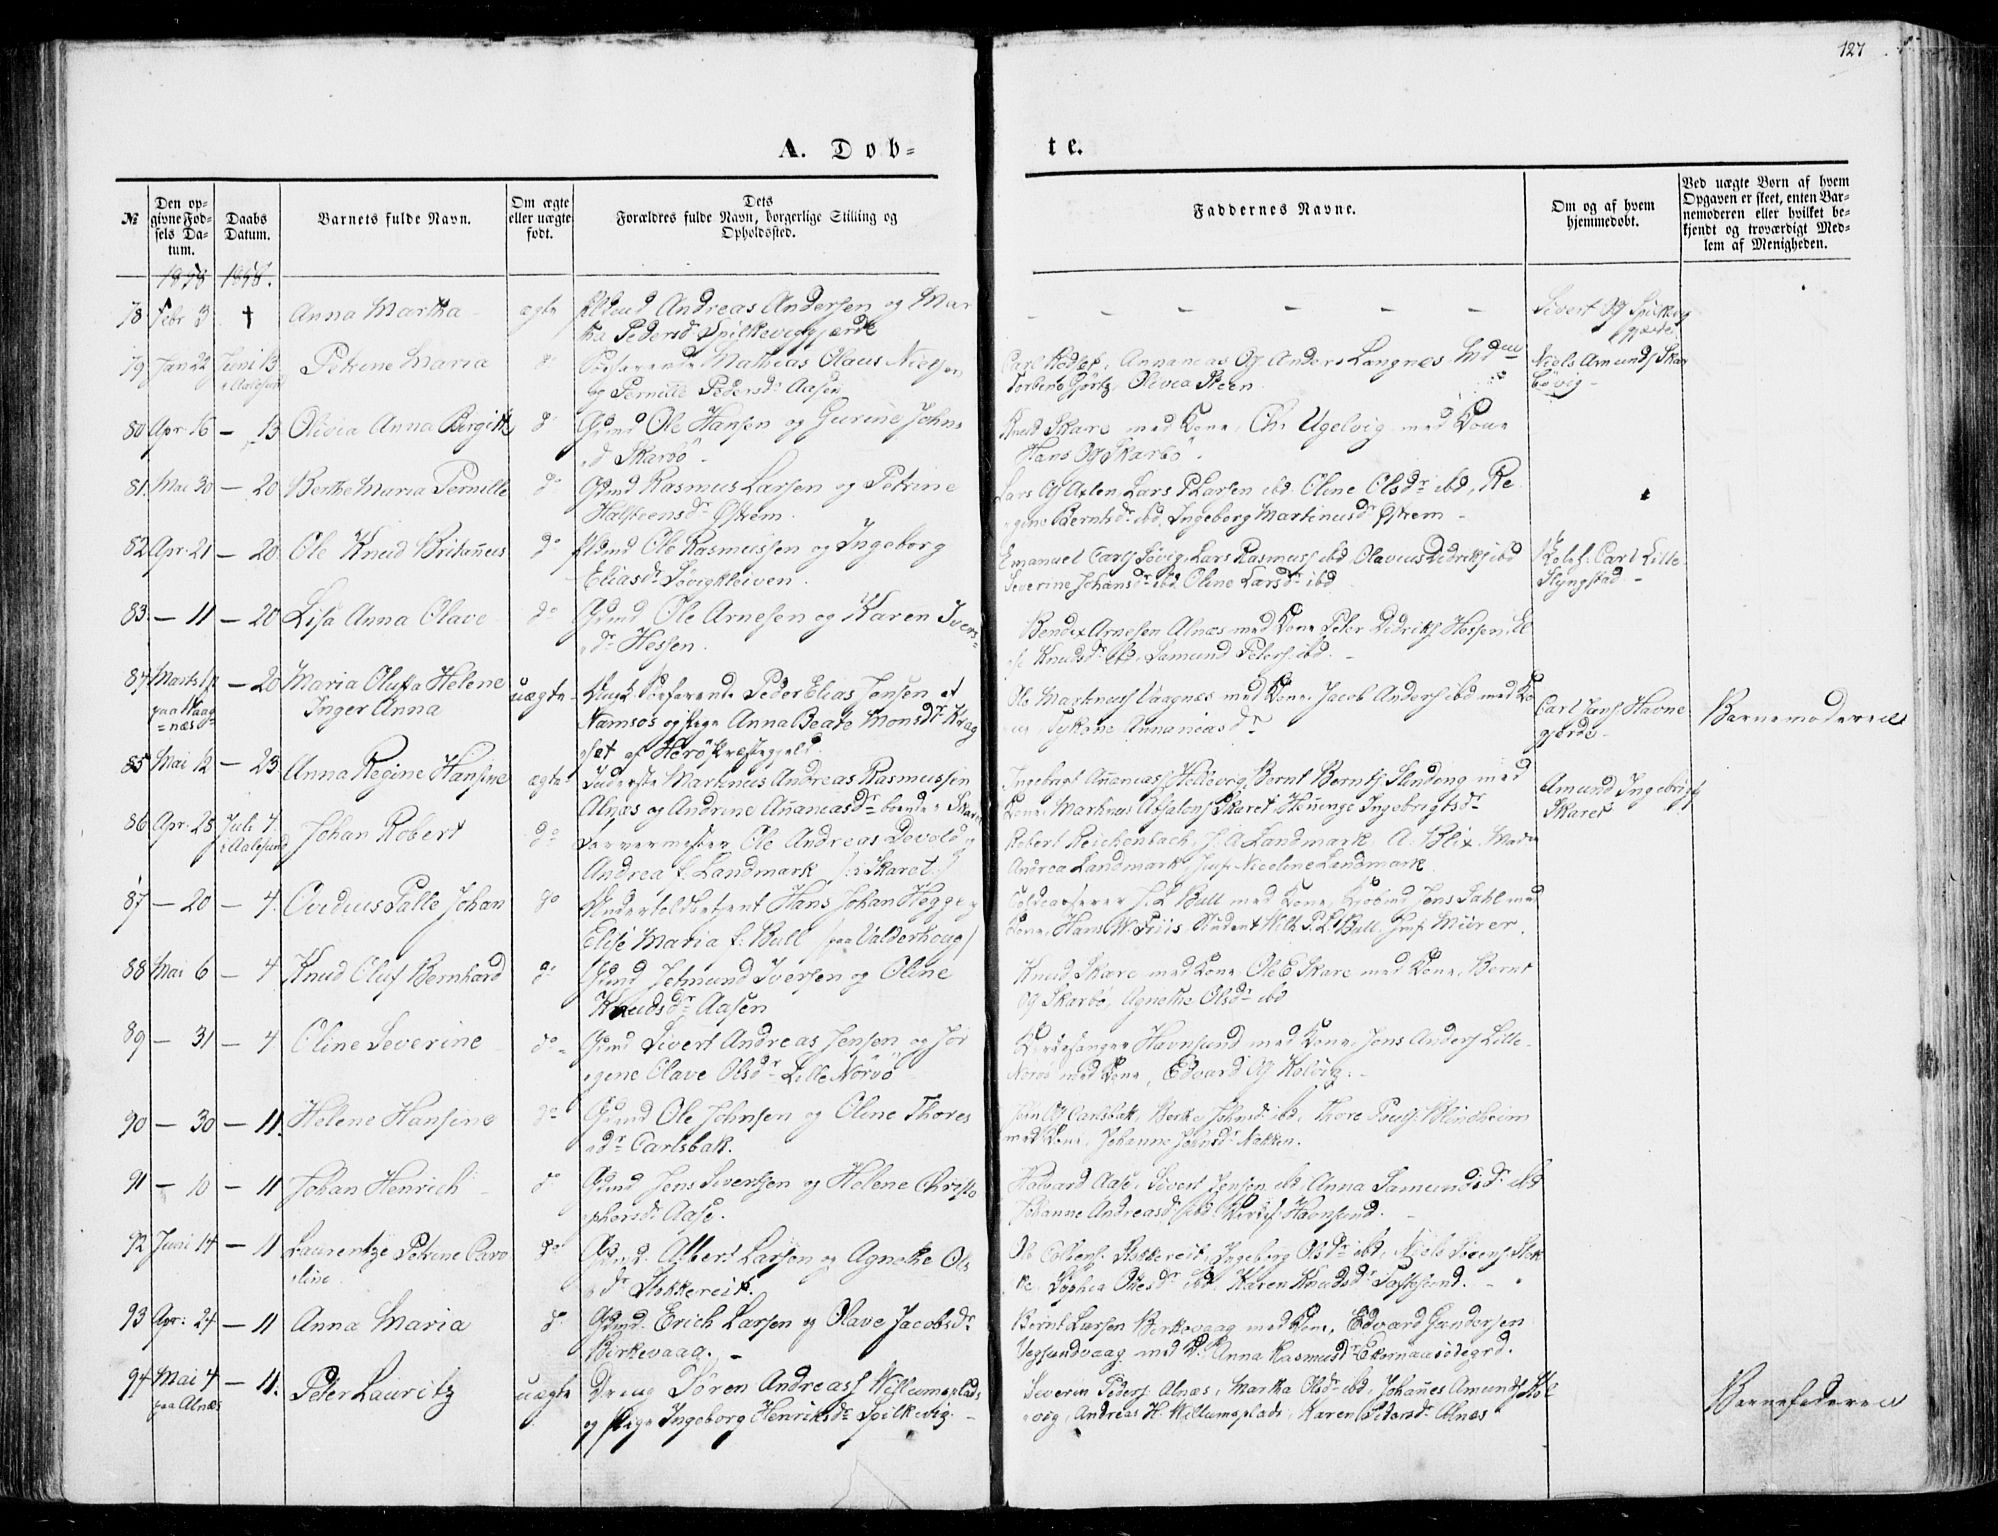 127
A. Døb-
te.
№
Den op-
givne Fød-
sels Da-
tum.
Daabs
Datum.
Barnets fulde Navn.
Om ægte
eller uægte
født.
Dets
Forældres fulde Navn, borgerlige Stilling og
Opholdssted.
Faddernes Navne.
Om og af hvem
hjemmedøbt.
Ved uægte Børn af hvem
Opgaven er skeet, enten Bar-
nemoderen eller hvilket be-
kjendt og troværdigt Med-
lem af Menigheden.
1858 1858.
78 Febr 3 † Anna Martha ægte Andreas Andersen og Mar
tha Pedersd Spilkeviggjærde
79 Jan 22 Juni 13 Petrine Maria do Mathias Olaus Nielsen
i Aalesund og Pernille Pedersdr Aasen
Anders Langnes
Olivia Steen
Niels Amunds Skar
bövig
80 Apr. 16 — 13 Olivia Anna Birgitte do Gmd Ole Hansen og Gurine Johns
dr Skarbö.
Knud Skare med Kone, Chr Ugelvig med Kone
Hans Skarbö.
81. Mai 30 — 20 Berthe Maria Pernille do Gmd Rasmus Larsen og Petrine
Halsteensdr Østrem.
Lars P Larsen ibd. Oline Olsdr ibd, Re
gine Berntsdr ibd, Ingeborg Martinusdr Østrem
82 Apr. 21 — 20. Ole Knud Britanus do Ole Rasmussen og Ingeborg
Eliasdr Sövigkleiven.
Emanuel Carls Sövig, Lars Rasmuss ibd Olavius Didriks ibd
Severine Johansdr ibd Oline Larsdr ibd
Carl Lille
Slyngstad
83. — 11 — 20 Lisa Anna Olave do Gmd Ole Arnesen og Karen Ivers
dr Hessen.
Bendix Arnesen Alnæs med Kone Peter Didriks Hessen, El
se Knudsdr ibd, Samund Peters ibd.
84 Marts — 20 Maria Oluffa Helene uægte Peder Elias Jensen af
paa Vaag Inger Anna Namsos og Pige Anna Beate Monsdr Krag
=næs set af Herö Præstegjeld
Ole Martinus Vaagnes med Kone, Jacob Anders ibd med Ko
ne,
Carl Jens Havne
gjærde
Barnemoderen
85 Mai 12 — 23 Anna Regine Hansine ægte Inderste Martinus Andreas Rasmussen
Alnæs og Andrine Ananiasdr boende i Skaret
Bernt Bernts Slinning med
Kone, Martinus Absalons Skaret, Ingebrigtsdr
Amund Ingebrigts
Skaret
86 Apr. 28 Juli 4 Johan Robert do Farvermester Ole Andreas Devold og
i Aalesund Andrea f. Landmark /: i Skaret :/
Robert Reichenbach, J. A Landmark, A. Blix, Mad
Andrea Landmark Jmf. Nicoline Landmark
87 — 20 — 4. Ovidius Palle Johan do Undertoldbetjent Hans Johan Hegge og
Elise Maria f. Bull /paa Valderhoug/
J. L Bull med Kone, Kjöbmd Jens Dahl med
Kone, Hans W Friis Student Wilh P. L. Bull, Jmf Mürer.
88 Mai 6 — 4 Knud Oluf Bernhard do Gmd Jetmund Iversen og Oline
Knudsdr Aasen
Knud Skare med Kone, Ole E Skare med Kone, Bernt
Skarbö, Agnethe Olsdr ibd
89 — 31 — 4 Oline Severine do Gmd Sivert Andreas Jensen og Jör
gine Olave Olsdr Lille Nörvö
Kirkesanger Havnsund med Kone, Jens Anders Lille
Nörvö med Kone, Edvard Kolvig.
90 — 30 — 11. Helene Hansine do Gmd Ole Johnsen og Oline Thores
dr Carlsbak.
Carlsbak, Berthe Johnsdr ibd, Thore Pouls Blindheim
med Kone, Johanne Johnsdr Nakken.
91 — 10 — 11 Johan Henrich do Gmd Jens Sivertsen og Helene Christo
phersdr Aase.
Hatvard Aase, Sivert Jensen ibd, Anna Samundsdr ibd
Johanne Andreasdr ibd Havnsund.
92 Juni 14 — 11 Laurentze Petrine Caro do Gmd. Albert Larsen og Agnethe Ols
line dr Stokkereit.
Stokkereit, Ingeborg Olsdr ibd, Niels Sörens Stok
ke, Sophia Olesdr ibd, Karen Knudsdr
93 Apr: 24 — 11 Anna Maria do Gmd. Erich Larsen og Olave Jacobsdr
Birkevaag.
Bernt Larsen Birkevaag med Kone, Edvard Gundersen
Vegsundvaag med K. Anna Rasmusdr Ekornaasödegrd.
94 Mai 4 — 11. Peter Lauritz uægte Dreng Sören Andreass Willumsplads
paa Alnæs og Pige Ingeborg Henriksdr Spilkevig.
Severin Peders Alnæs, Martha Olsdr ibd, Johañes Amunds Köl
vig, Andreas H. Willumsplads, Karen Pedersdr Alnæs
Barnefaderen